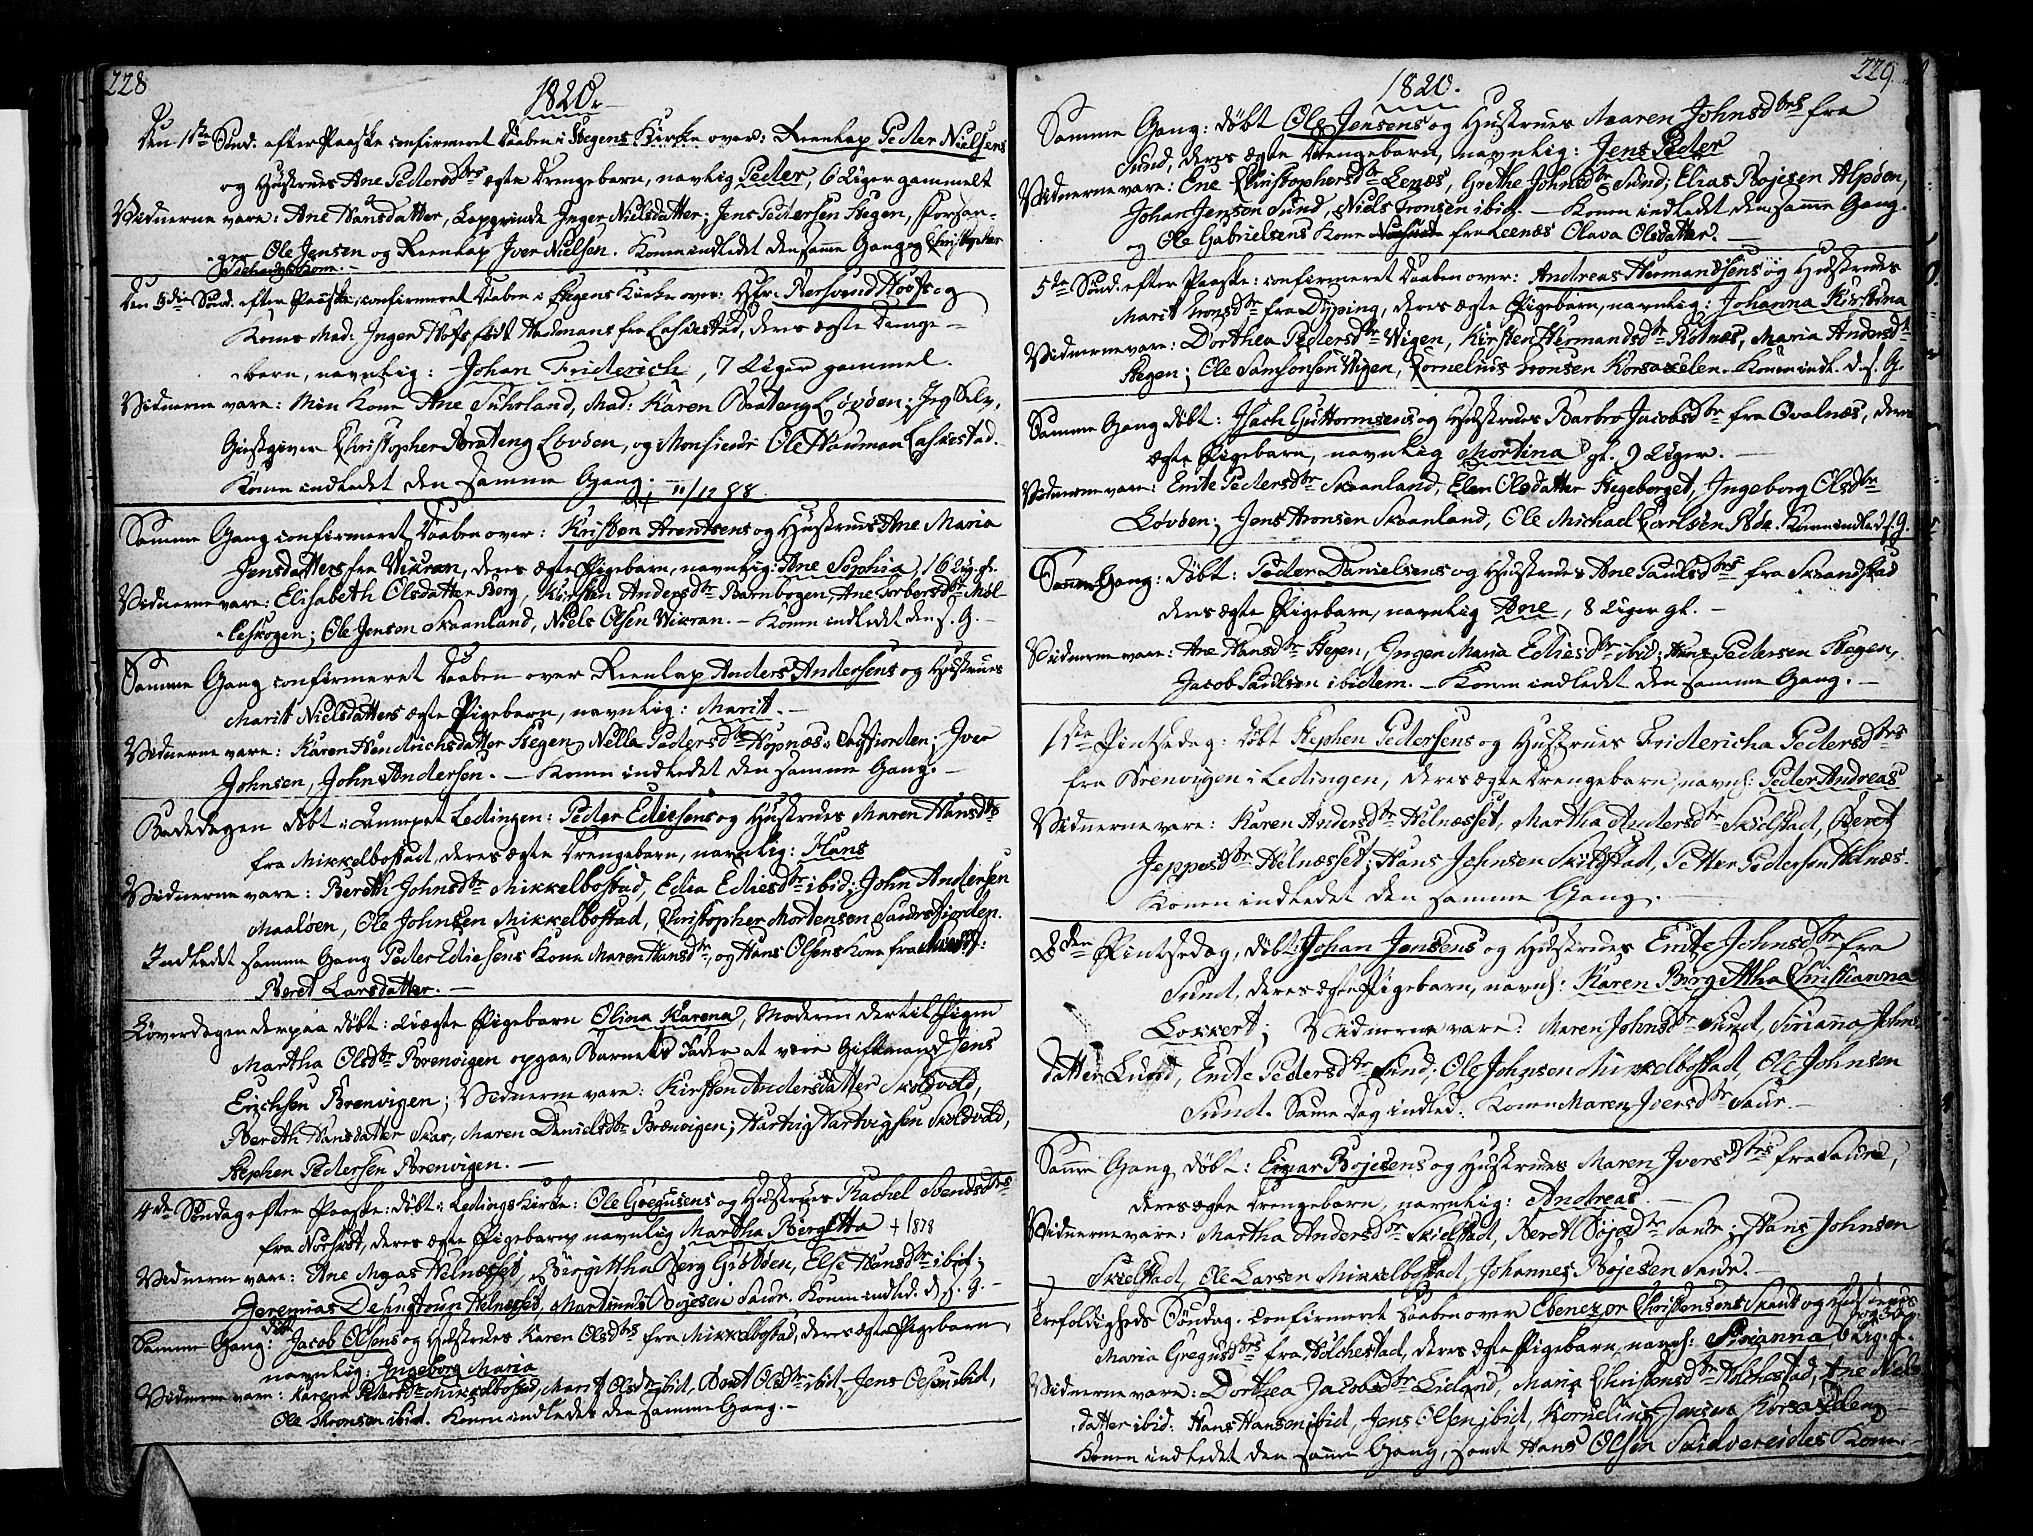 228
1820.
Den 1ste Sønd. efter Paaske confirmeret Daaben i Stegens Kirke over: Reenlap Peder Nielsens
og Hustrues Ane Pedersdtrs ægte Drengebarn, navnlig Peder, 6 Uger gammelt
Vidnerne vare: Ane Hansdatter, Lapqvinde Inger Nielsdatter; Jens Pedersen Stegen, Forsan-
ger Ole Jensen og Reenlap Iver Nielsen. Konen indledet den samme Gang og Christopher
Kone.
Den Sønd. efter Paaske, confirmeret Daaben i Stegens Kirke over: Hr: Hoofs og
Kones Mad. Inger Hofs, født fra Laskestad, deres ægte Drenge-
barn, navnlig: Johan Friderich, 7 Uger gammel.
Vidnerne vare: Min Kone Ane Suhrland, Mad: Karen Brateng Løvøen; Jeg Selv,
Giestgiver Christopher Brateng Løvøen, og Monsieur Ole Hauman Laskestad.
Konen indledet den samme Gang. + 11/12 88
Samme Gang confirmeret Daaben over: Kristen Arentsens og Hustrues Ane Maria
Jensdatters fra Wikran, deres ægte Pigebarn, navnlig: Ane Sophia, 16 Ug. g.
Vidnerne vare: Elisabeth Olsdatter Berg, Kirsten Andersdtr Barnbogen, Ane Torbersdtr Møl
leskogen; Ole Jensen Skaanland, Niels Olsen Wikran. - Konen indledet den s. G. -
Samme Gang confirmeret Daaben over Reenlap Anders Andersens og Hustrues
Marit Nielsdatters ægte Pigebarn, navnlig: Marit. -
Vidnerne vare: Karen Hendrichsdatter Stegen, Nella Pedersdtr Hopnæs i Sagfjorden; Iver
Johnsen, John Andersen. - Konen indledet den samme Gang. -
Bededagen døbt i Annexet Lødingen: Peder Ediesens og Hustrues Maren Hansdtrs
fra Mikkelbostad, deres ægte Drengebarn, navnlig: Hans
Vidnerne vare: Bereth Johnsdtr Mikkelbostad, Edia Ediesdtr ibid; John Andersen
Maaløen, Ole Johnsen Mikkelbostad, Christopher Mortensen Saursfjorden.
Indledet samme Gang Peder Ediesens Kone Maren Hansdtr, og Hans Olsens Kone fra
Beret Larsdatter. -
Løverdagen derpaa døbt: Uægte Pigebarn Olina Karena, Moderen dertil Pigen
Martha Olsdtr Brenvigen opgav Barnets Fader at være Giftmand Jens
Erichsen Brenvigen; Vidnerne vare: Kirsten Andersdatter Skoldvold,
Bereth Hansdatter Skar, Maren Danielsdtr Brenvigen; Hartvig Hartvigsen Skoldvold,
Stephen Pedersen Brenvigen. -
4de Søndag efter Paaske: døbt i Ledings Kirke: Ole Gregusens og Hustrues Rachel Svendsdtrs
fra Norskot, deres ægte Pigebarn navnlig Martha Birgitta + 1878
Vidnerne vare: Ane Helnæsset, Birgittha Berg Gisløen, Else Hansdtr ibid;
Jeremias Desingtoun Helnesset, Martinus Bojesen Saur. Konen indled. d. s. G. -
døbt
Samme Gang: Jacob Olsens og Hustrues Karen Olsdtrs fra Mikkelbostad, deres ægte Pigebarn,
navnlig: Ingeborg Maria
Vidnerne vare: Karen Pedersdtr Mikkelbostad, Marit Olsdtr ibid, Beret Olsdtr ibid - Jens Olsen ibid,
Ole Thronsen ibid. Konen indledet den samme Gang. -
229
1820.
Samme Gang: døbt Ole Jensens og Hustrues Maaren Johnsdtrs fra
Sund, deres ægte Drengebarn, navnlig: Jens Peder
Vidnerne vare: Ene Christophersdtr Lenæs, Grethe Johnsdtr Sund; Elias Bojesen Alpøen,
Johan Jensen Sund, Niels Tronsen ibid. - Konen indledet den samme Gang.
og Ole Gabrielsens Kone fra Leenæs Olava Olsdatter. -
5te Sønd. efter Paaske: confirmeret Daaben over: Andreas Hermandsens og Hustrues
Marit Tronsdtr fra Dyping, deres ægte Pigebarn, navnlig: Johanna Kirstina
Vidnerne vare: Dorthea Pedersdtr Wigen, Kirsten Hermandsdtr Rotnes, Maria Andersdtr
Stegen; Ole Samsonsen Wigen, Cornelius Tronsen Korsaxelen. Konen indl. d. s. G.
Samme Gang døbt: Isach Guttormsens og Hustrues Barbro Jacobsdtr fra Qvalnæs, deres
ægte Pigebarn, navnlig Mortina gl. 9 Uger. -
Vidnerne vare: Ente Pedersdtr Skaanland, Elen Olsdatter Hegeborget, Ingeborg Olsdtr
Løvøen; Jens Aronsen Skaanland, Ole Michael Carlsen Bøe. Konen indled. s. G.
Samme Gang: døbt: Peder Danielsens og Hustrues Ane Paulsdtrs fra Skaanstad
deres ægte Pigebarn, navnlig Ane, 8 Uger gl. -
Vidnerne vare: Ane Hansdtr Stegen, Inger Maria Ediesdtr ibid; Hans Pedersen Stegen,
Jacob Paulsen ibidem. - Konen indledet den samme Gang. -
1ste Pintsedag: døbt Stephen Pedersens og Hustrues Fridericha Pedersdtrs
fra Brenvigen i Ledingen, deres ægte Drengebarn, navnl: Peder Andreas
Vidnerne vare: Karen Andersdtr Helnæsset, Martha Andersdtr Skielstad, Beret
Jeppesdtr Helnæsset; Hans Johnsen Skielstad, Petter Pedersen Helnæs.
Konen indledet den samme Gang. -
2den Pintsedag, døbt: Johan Jensens og Hustrues Ente Johnsdtr fra
Sund, deres ægte Pigebarn, navnl: Karen Birgittha Christianna
Lokkert; Vidnerne vare: Maren Johnsdtr Sund, Sirianna Johns
datter Lund, Ente Pedersdtr Sund; Ole Johnsen Mikkelbostad, Ole Johnsen
Sund. Same Dag indled: Konen Maren Iversdtr Saur. -
Samme Gang døbt: Einar Bojesens og Hustrues Maren Iversdtrs fra Saur,
deres ægte Drengebarn, navnlig: Andreas -
Vidnerne vare: Martha Andersdtr Skielstad, Beret Bojesdtr Saur; Hans Johnsen
Skielstad, Ole Larsen Mikkelbostad, Johannes Bojesen Saur. -
Trefoldigheds Søndag. confirmeret Daaben over Ebenezer Christensens og Hustrues
Maria Gregusdtrs fra Holchestad, deres ægte Pigebarn, navnl: Sirianna, 6 Ug. g.
Vidnerne vare: Dorthea Jacobsdtr Leeland, Maria Christensdtr Holchestad, Ane Niels
datter ibid: Hans Hansen ibid, Jens Olsen ibid, Kornelius Jensen Korsaxelen -
Konen indledet den samme Gang, samt Hans Olsen Skidvereides Kone. -